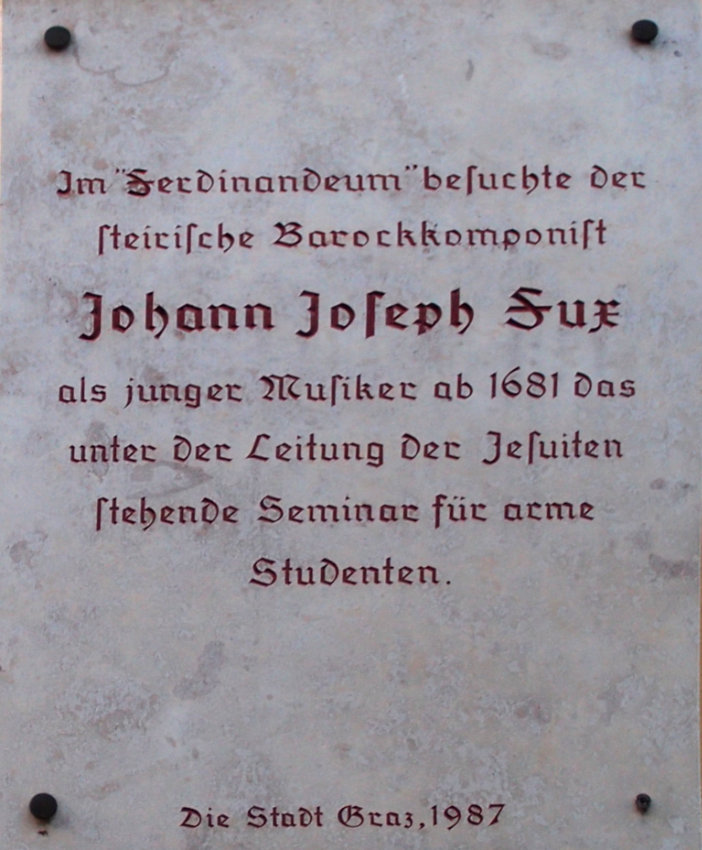 Im "Ferdinandeum" beſuchte der
ſteiriſche Barockkomponiſt
Johann Joſeph Fux
als junger Muſiker ab 1681 das
unter der Leitung der Jeſuiten
ſtehende Seminar für arme
Studenten.
Die Stadt Graz, 1987